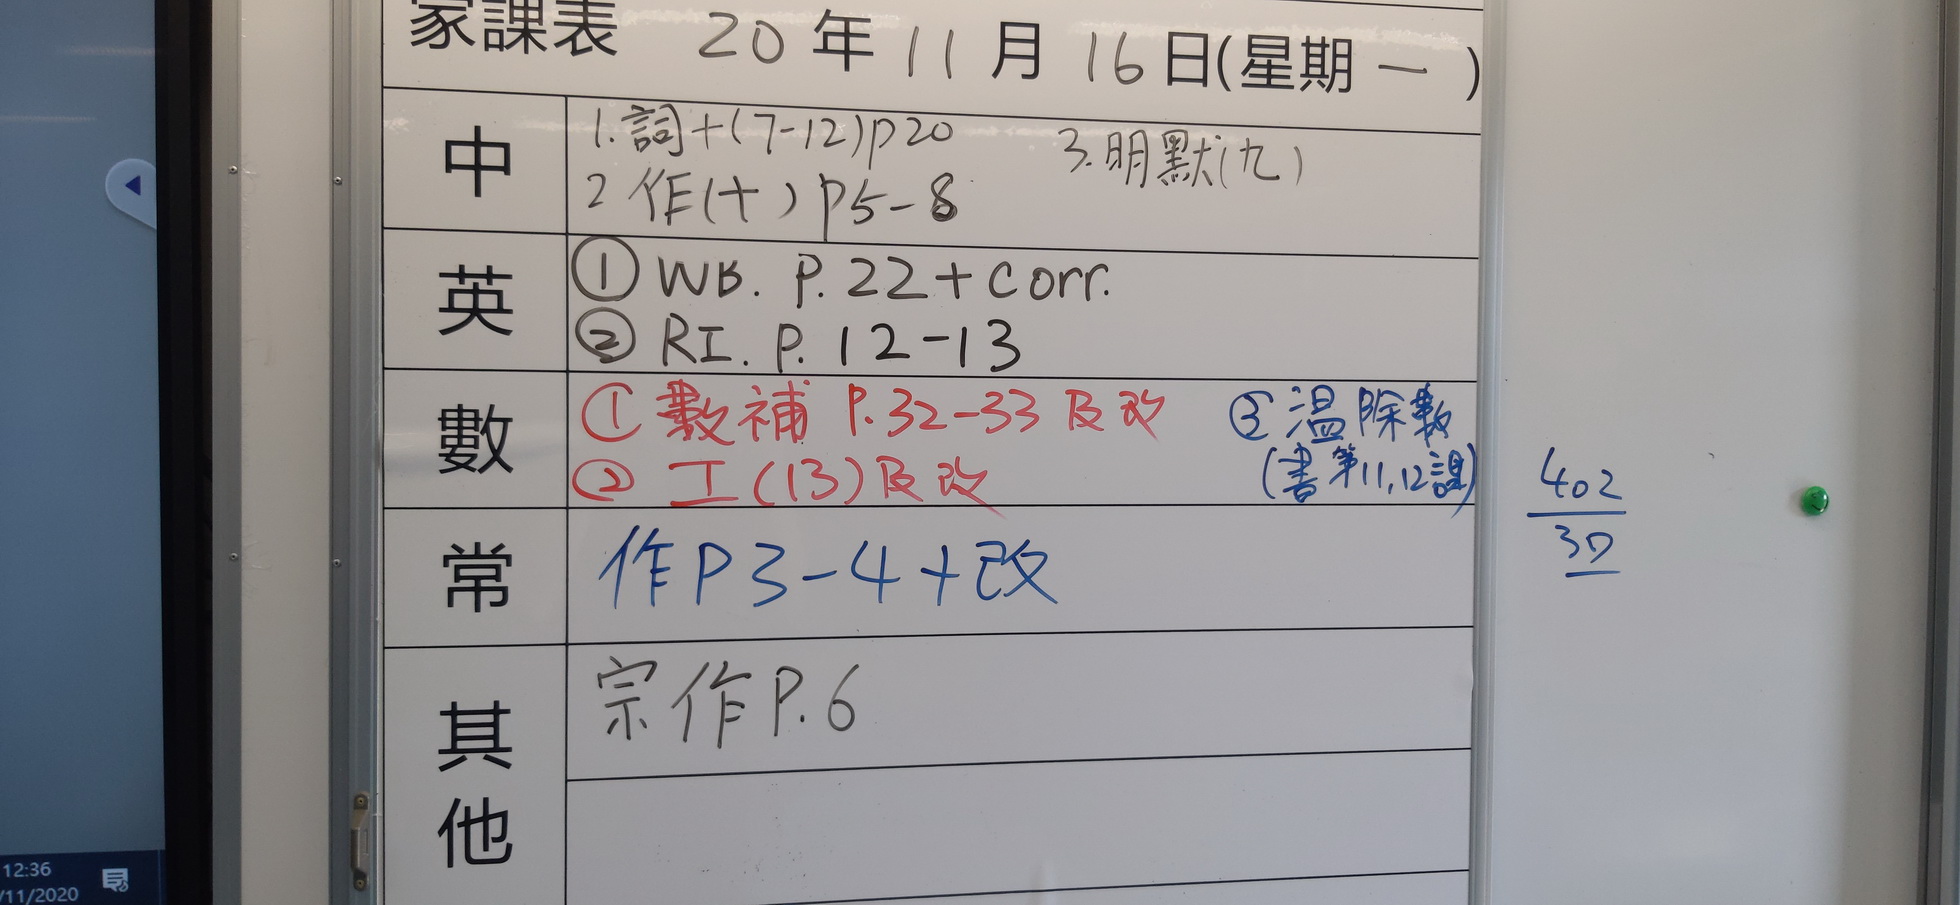 家課表 20年11月16日(星期一)
中
1.詞+(7-12)p20
2 作(十)p5-8
3.明默(九)
英
① WB. P.22+corr.
② RI. P. 12-13
數
① 數補 P.32-33及改
② 工(13)及改
③ 溫除數
(書第11,12課)
常
作P3-4+改
其他
宗作P.6
402
37
12:36
/11/2020